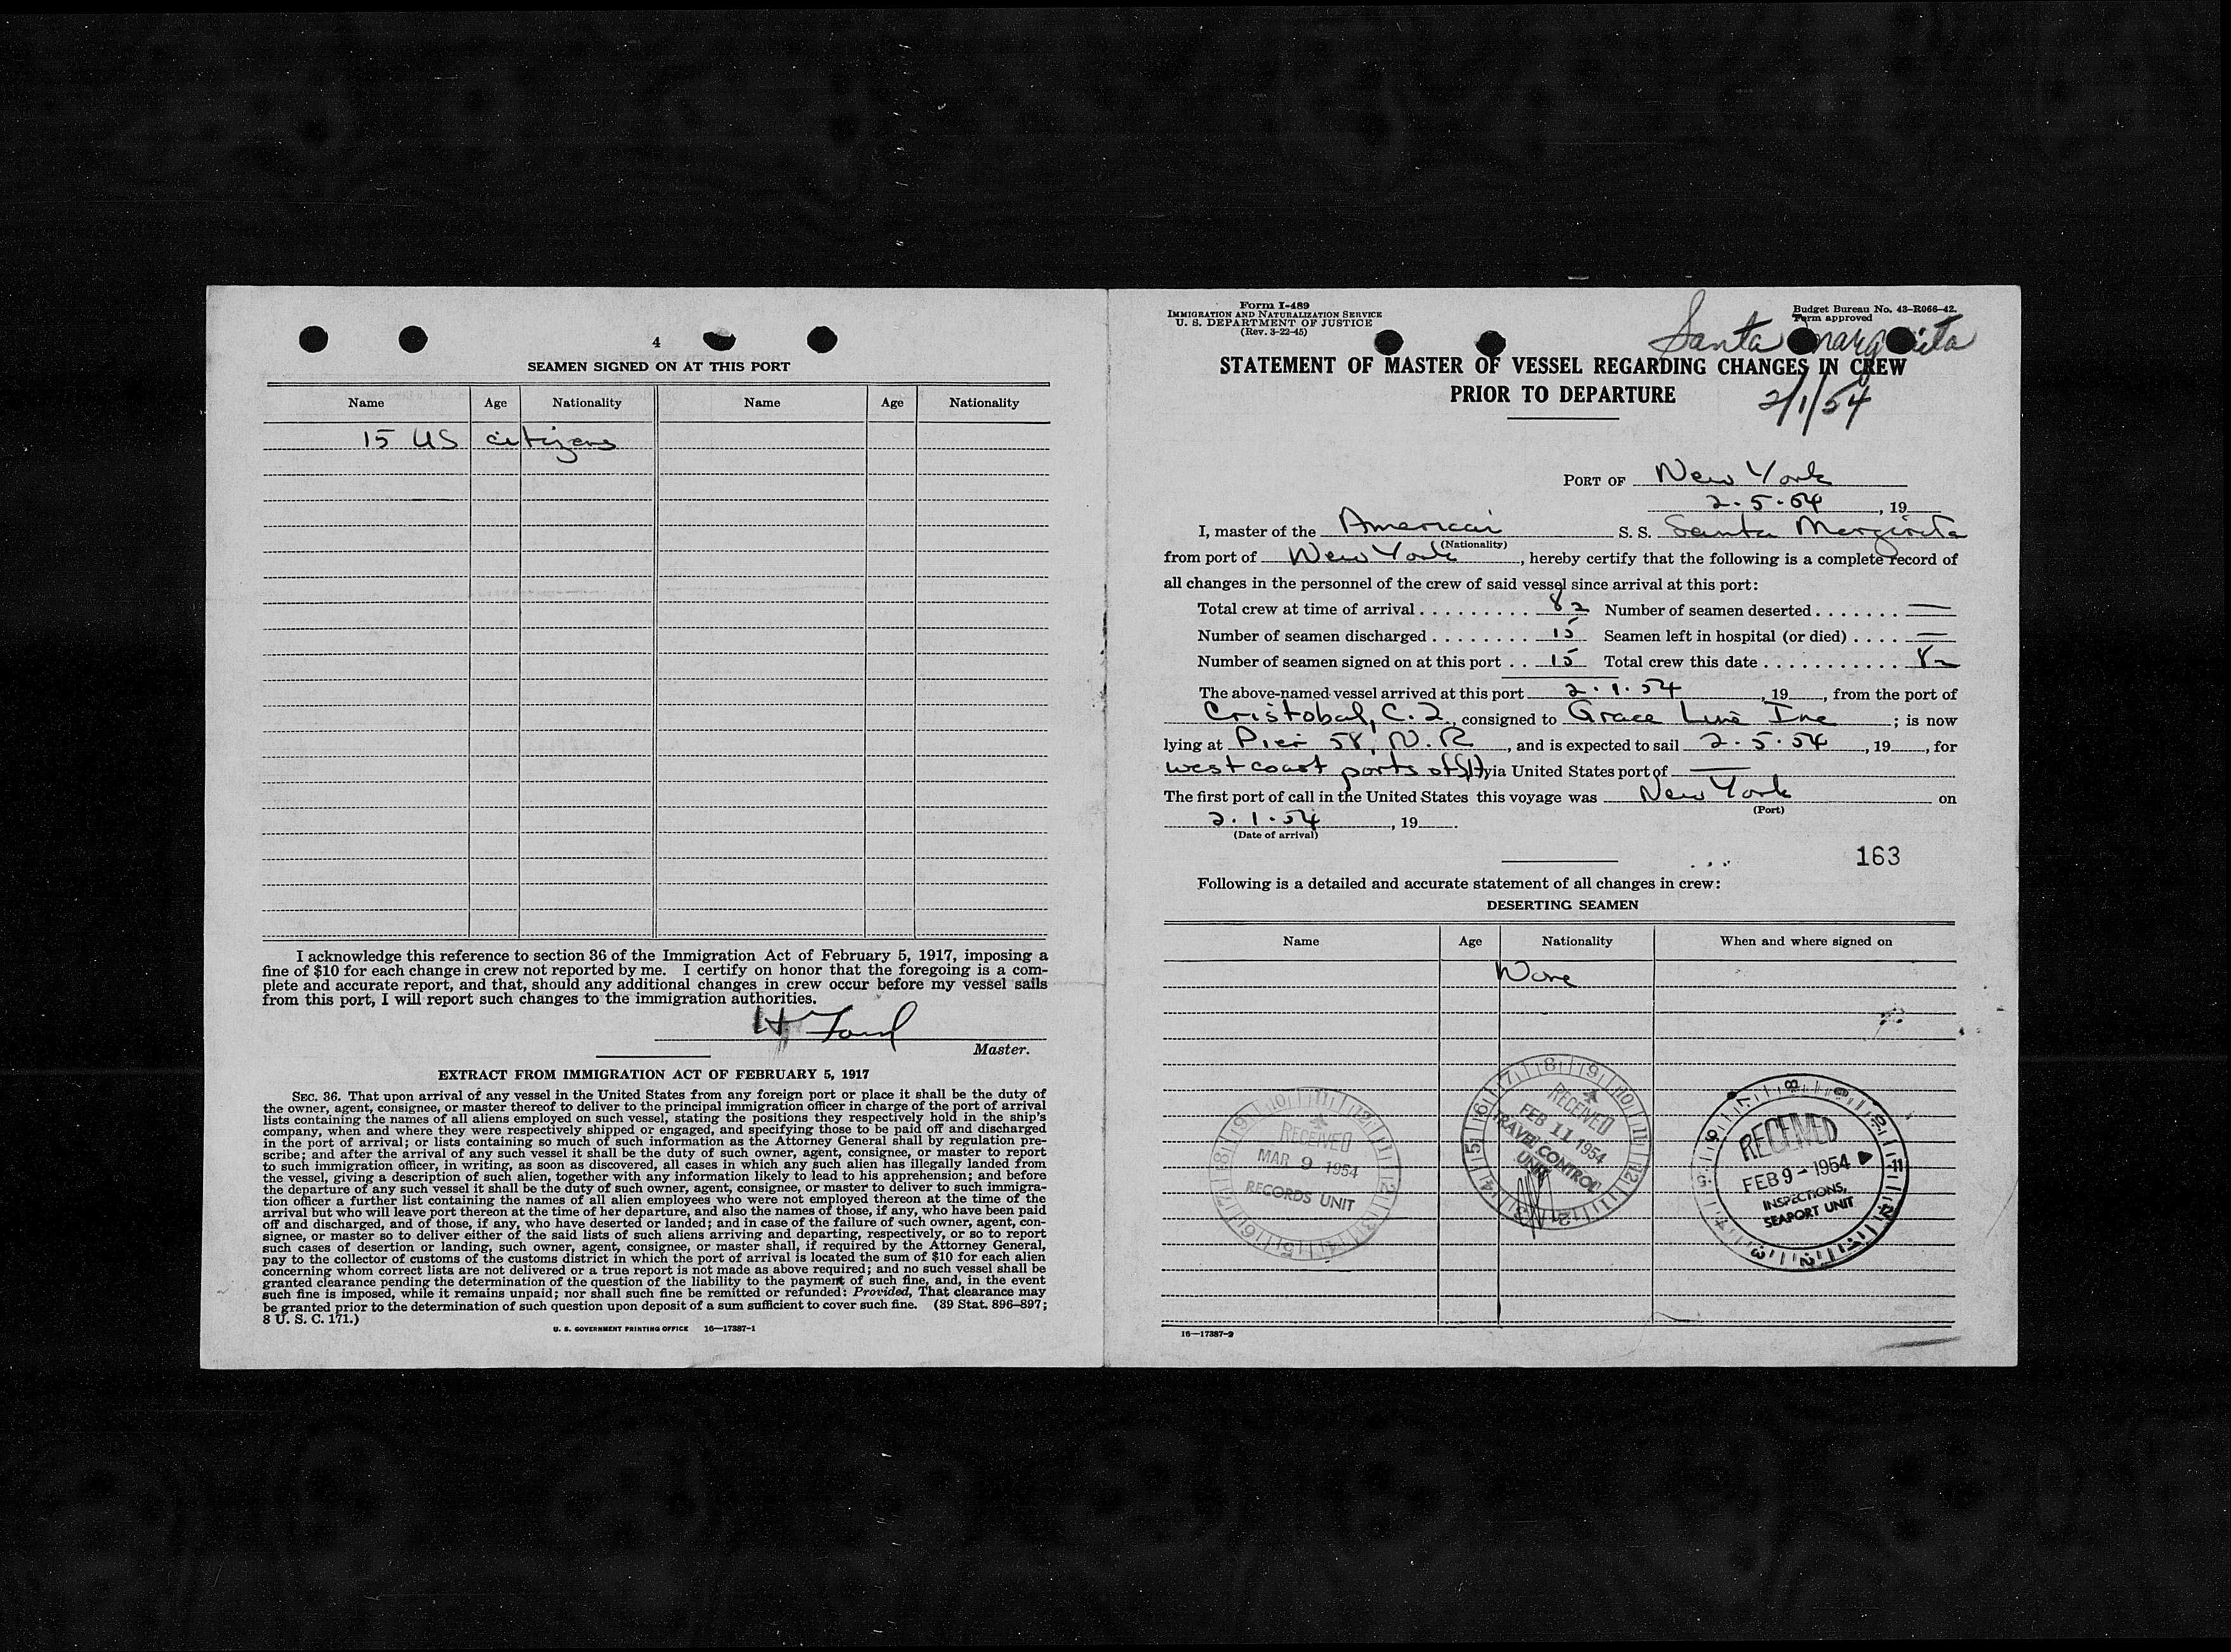 4
SEAMEN SIGNED ON AT THIS PORT
Name Age Nationality Name Age Nationality
15 US citizens
I acknowledge this reference to section 36 of the Immigration Act of February 5, 1917, imposing a
fine of $10 for each change in crew not reported by me. I certify on honor that the foregoing is a com-
plete and accurate report, and that, should any additional changes in crew occur before my vessel sails
from this port, I will report such changes to the immigration authorities.
H Ford
Master.
EXTRACT FROM IMMIGRATION ACT OF FEBRUARY 5, 1917
SEC. 36. That upon arrival of any vessel in the United States from any foreign port or place it shall be the duty of
the owner, agent, consignee, or master thereof to deliver to the principal immigration officer in charge of the port of arrival
lists containing the names of all aliens employed on such vessel, stating the positions they respectively hold in the ship's
company, when and where they were respectively shipped or engaged, and specifying those to be paid off and discharged
in the port of arrival; or lists containing so much of such information as the Attorney General shall by regulation pre-
scribe; and after the arrival of any such vessel it shall be the duty of such owner, agent, consignee, or master to report
to such immigration officer, in writing, as soon as discovered, all cases in which any such alien has illegally landed from
the vessel, giving a description of such alien, together with any information likely to lead to his apprehension; and before
the departure of any such vessel it shall be the duty of such owner, agent, consignee, or master to deliver to such immigra-
tion officer a further list containing the names of all alien employees who were not employed thereon at the time of the
arrival but who will leave port thereon at the time of her departure, and also the names of those, if any, who have been paid
off and discharged, and of those, if any, who have deserted or landed; and in case of the failure of such owner, agent, con-
signee, or master so to deliver either of the said lists of such aliens arriving and departing, respectively, or so to report
such cases of desertion or landing, such owner, agent, consignee, or master shall, if required by the Attorney General,
pay to the collector of customs of the customs district in which the port of arrival is located the sum of $10 for each alien
concerning whom correct lists are not delivered or a true report is not made as above required; and no such vessel shall be
granted clearance pending the determination of the question of the liability to the payment of such fine, and, in the event
such fine is imposed, while it remains unpaid; nor shall such fine be remitted or refunded: Provided, That clearance may
be granted prior to the determination of such question upon deposit of a sum sufficient to cover such fine. (39 Stat. 896-897;
8 U. S. C. 171.)
U. S. GOVERNMENT PRINTING OFFICE 16—17387-1
Form I-489
IMMIGRATION AND NATURALIZATION SERVICE
U. S. DEPARTMENT OF JUSTICE
(Rev. 3-22-45)
Budget Bureau No. 43-R066-42.
Form approved
Santa Margarita
STATEMENT OF MASTER OF VESSEL REGARDING CHANGES IN CREW
PRIOR TO DEPARTURE
2/1/54
PORT OF New York
2.5.54, 19
I, master of the American S. S. Santa Margirita
(Nationality)
from port of New York, hereby certify that the following is a complete record of
all changes in the personnel of the crew of said vessel since arrival at this port:
Total crew at time of arrival . . . . . . . . . 82 Number of seamen deserted . . . . . . . —
Number of seamen discharged . . . . . . . . 15 Seamen left in hospital (or died) . . . . —
Number of seamen signed on at this port . . 15 Total crew this date . . . . . . . . . . . 82
The above-named vessel arrived at this port 2.1.54, 19, from the port of
Cristobal, C.Z., consigned to Grace Line Inc; is now
lying at Pier 58, N.R, and is expected to sail 2.5.54, 19, for
west coast ports of SA via United States port of —
The first port of call in the United States this voyage was New York on
(Port)
2.1.54, 19.
(Date of arrival)
163
Following is a detailed and accurate statement of all changes in crew:
DESERTING SEAMEN
Name Age Nationality When and where signed on
None
RECEIVED
MAR 9 1954
RECORDS UNIT
RECEIVED
FEB 11 1954
TRAVEL CONTROL
UNIT
RECEIVED
FEB 9 - 1954
INSPECTIONS,
SEAPORT UNIT
16—17387-2